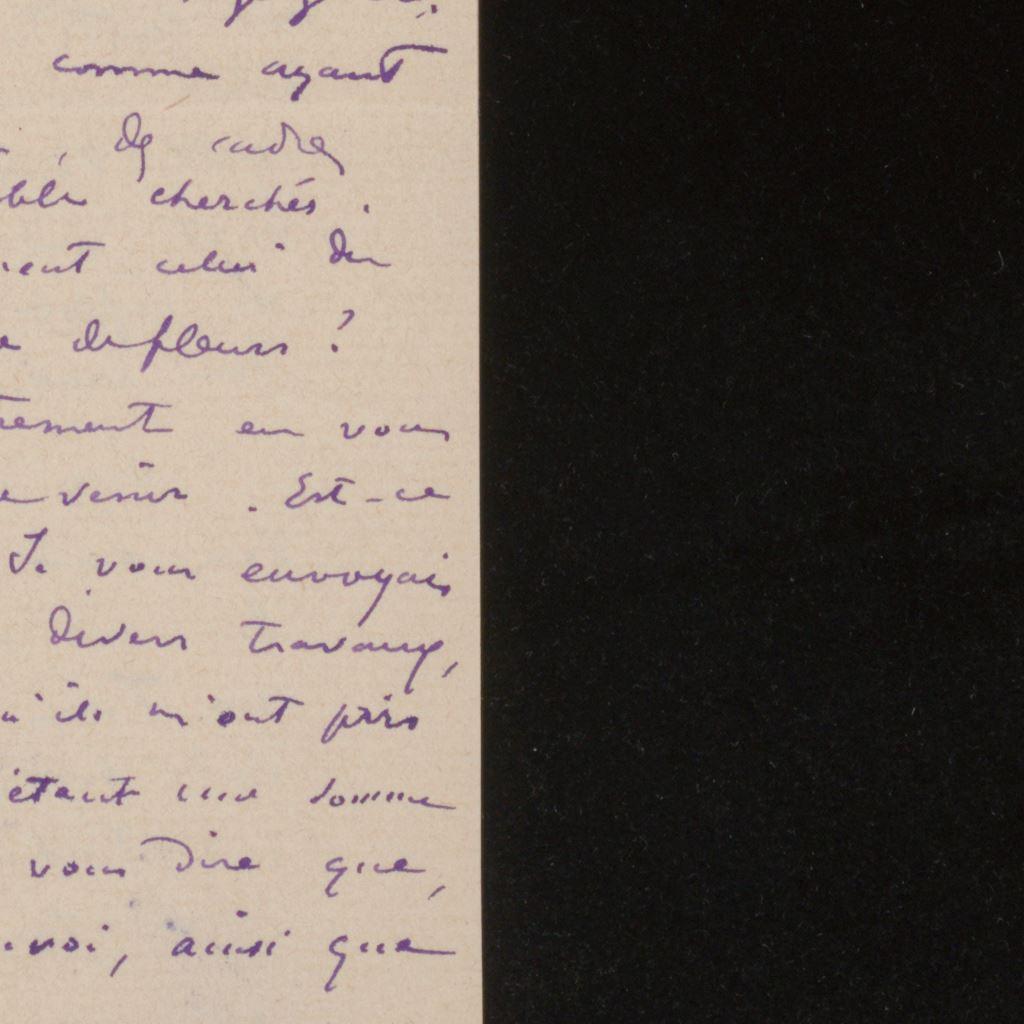 comme ayant
, des cadres
cherchés .
celui du
de fleurs ?
en vous
venir . Est-ce
Je vous envoyais
divers travaux,
qu'ils m'ont pris
étant une somme
vous dire que,
ainsi que